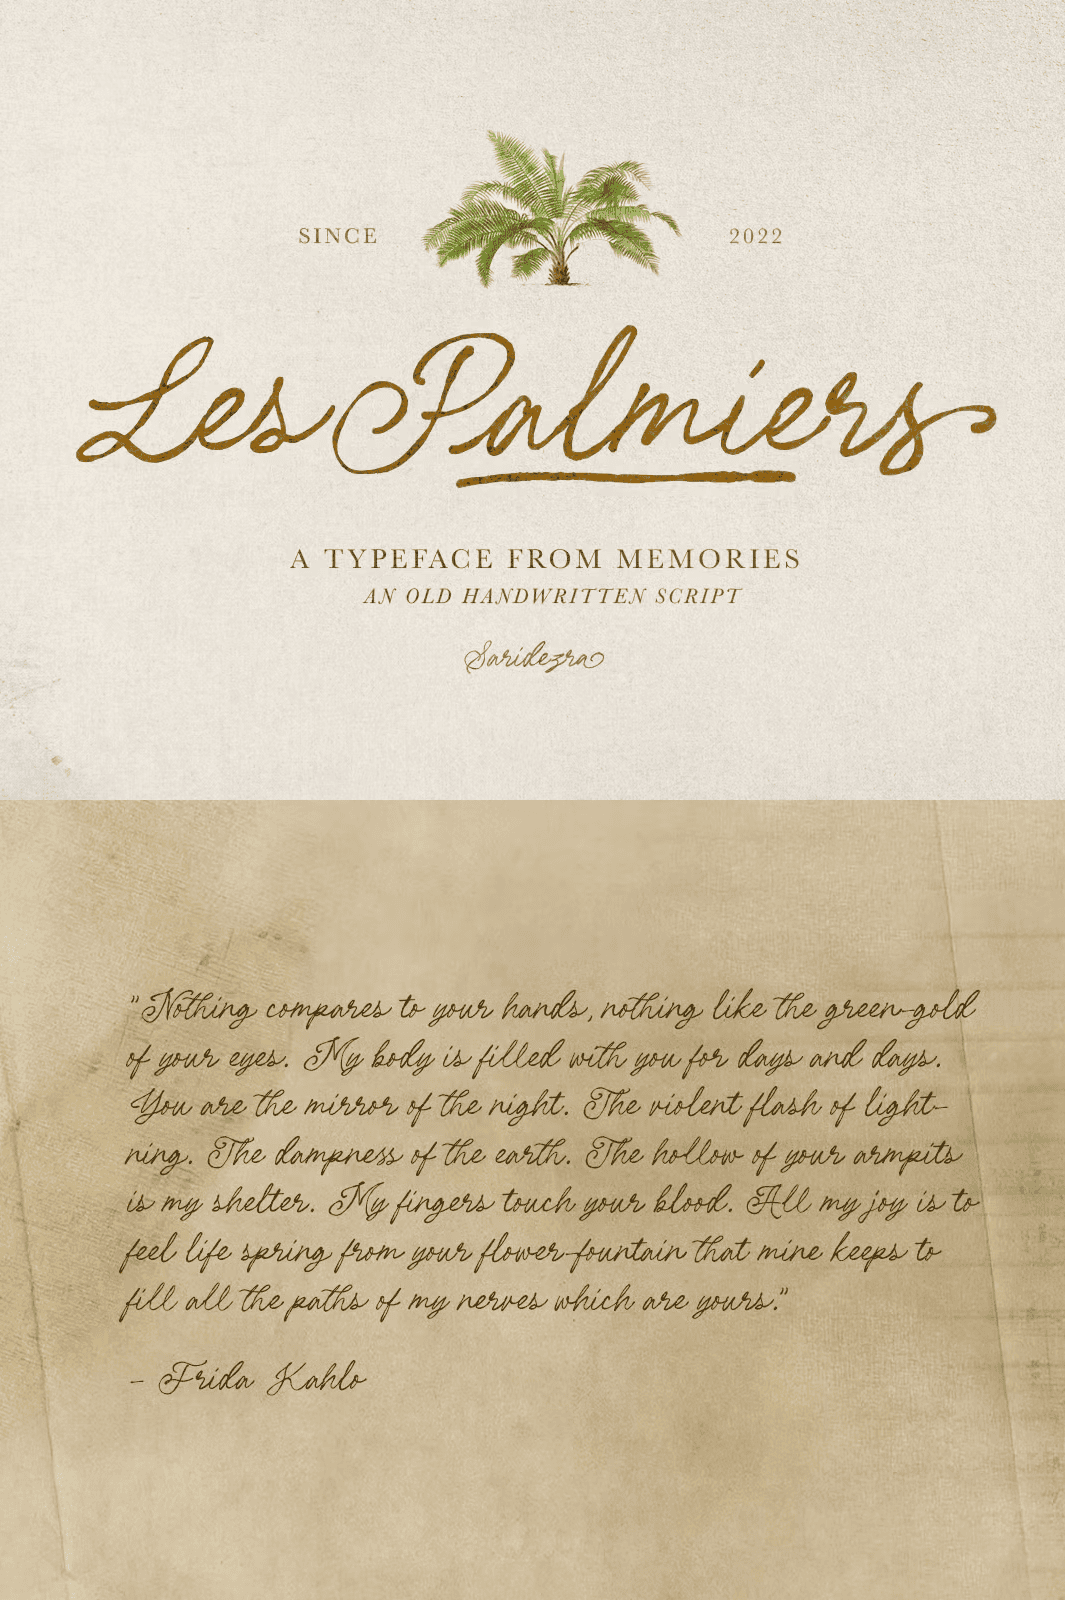 SINCE 2022
Les Palmiers
A TYPEFACE FROM MEMORIES
AN OLD HANDWRITTEN SCRIPT
Saridezra
"Nothing compares to your hands, nothing like the green-gold
of your eyes. My body is filled with you for days and days.
You are the mirror of the night. The violent flash of light-
ning. The dampness of the earth. The hollow of your armpits
is my shelter. My fingers touch your blood. All my joy is to
feel life spring from your flower-fountain that mine keeps to
fill all the paths of my nerves which are yours."
- Frida Kahlo